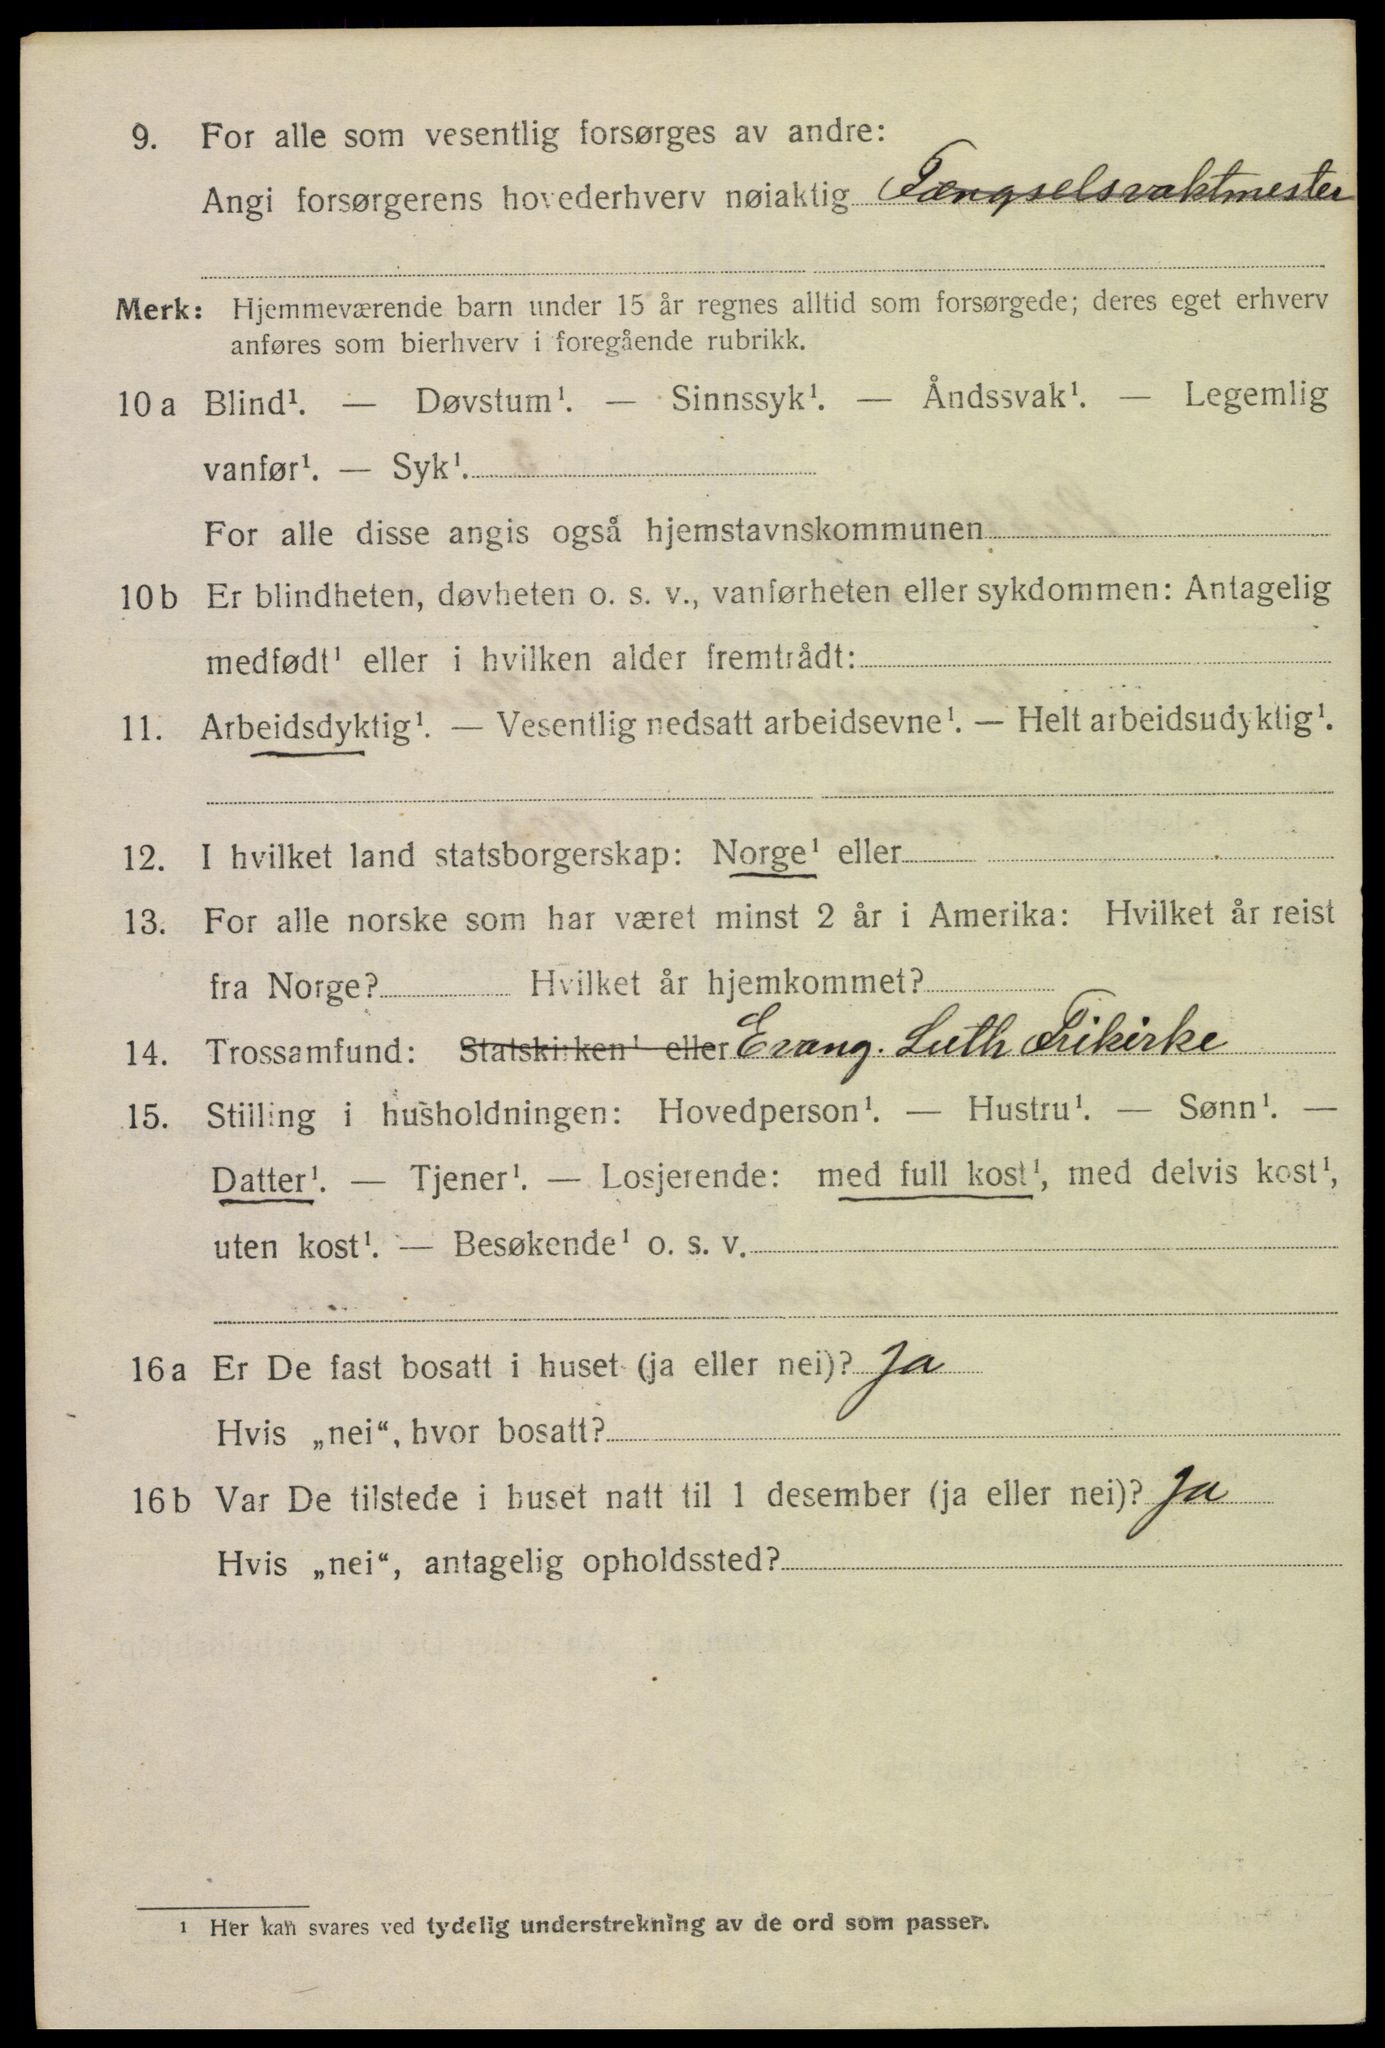 9. For alle som vesentlig forsørges av andre:
Angi forsørgerens hovederhverv nøiaktig Fængselsvaktmester
Merk: Hjemmeværende barn under 15 år regnes alltid som forsørgede; deres eget erhverv
anføres som bierhverv i foregående rubrikk.
10 a Blind¹. — Døvstum¹. — Sinnssyk¹. — Åndssvak¹. — Legemlig
vanfør¹. — Syk¹.
For alle disse angis også hjemstavnskommunen
10 b Er blindheten, døvheten o. s. v., vanførheten eller sykdommen: Antagelig
medfødt¹ eller i hvilken alder fremtrådt:
11. Arbeidsdyktig¹. — Vesentlig nedsatt arbeidsevne¹. — Helt arbeidsudyktig¹.
12. I hvilket land statsborgerskap: Norge¹ eller
13. For alle norske som har været minst 2 år i Amerika: Hvilket år reist
fra Norge? Hvilket år hjemkommet?
14. Trossamfund: Statskirken¹ eller Evang. Luth Frikirke
15. Stilling i husholdningen: Hovedperson¹. — Hustru¹. — Sønn¹. —
Datter¹. — Tjener¹. — Losjerende: med full kost¹, med delvis kost¹,
uten kost¹. — Besøkende¹ o. s. v.
16 a Er De fast bosatt i huset (ja eller nei)? Ja
Hvis „nei“, hvor bosatt?
16 b Var De tilstede i huset natt til 1 desember (ja eller nei)? Ja
Hvis „nei“, antagelig opholdssted?
¹ Her kan svares ved tydelig understrekning av de ord som passer.